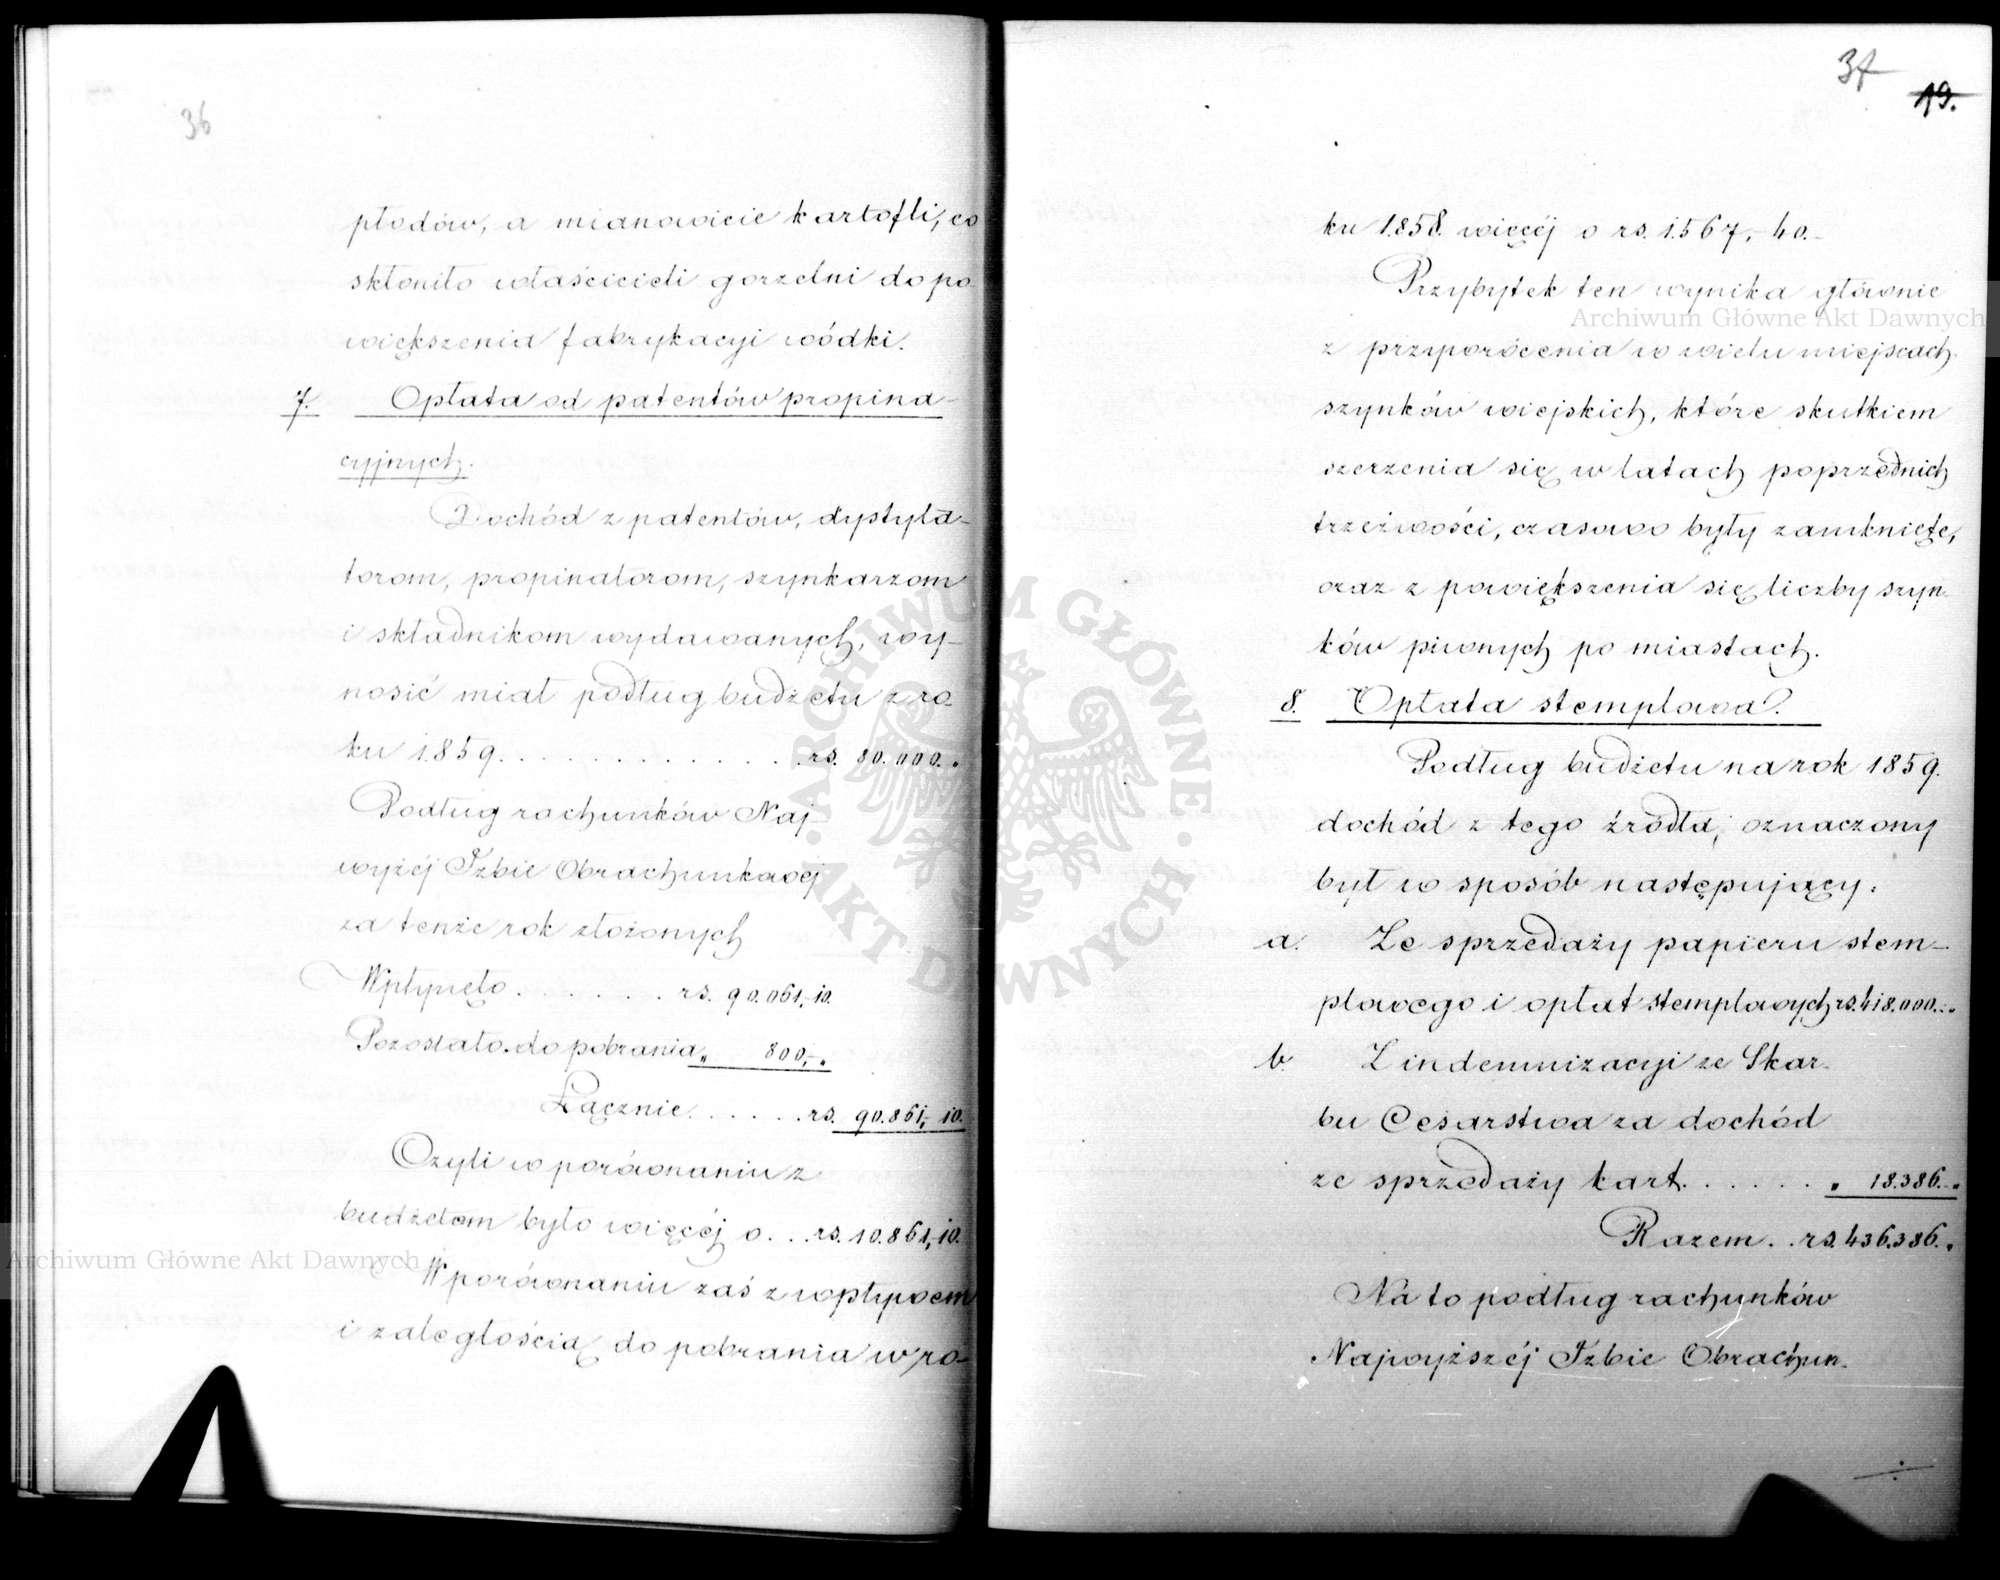 36
płodów, a mianowicie kartofli, co
skłoniło właścicieli gorzelni do po
większenia fabrykacyi wódki.
7. Opłata od patentów propina-
cyjnych.
Dochód z patentów, dystyla-
torom, propinatorom, szynkarzom
i składnikom wydawanych, wy-
nosić miał podług budżetu z ro-
ku 1859. . . . . . . . . . . . . . rs. 80.000.„
Podług rachunków Naj-
wyżéj Izbie Obrachunkowej
za tenże rok złożonych
Wpłynęło . . . . . . . rs. 90.061,-10.
Pozostało do pobrania „ 800,-„
Łącznie . . . . . . rs. 90.861,-10.
Czyli w porównaniu z
budżetem było więcéj o . . . rs. 10.861,-10.
W porównaniu zaś z wpływem
i zaległością do pobrania w ro-
37
19.
ku 1858. więcéj o rs. 1.567,-40.-
Przybytek ten wynika głównie
z przywrócenia w wielu miejscach
szynków wiejskich, które skutkiem
szerzenia się w latach poprzednich
trzeźwości, czasowo były zamknięte,
oraz z powiększenia się liczby szyn-
ków piwnych po miastach.
8. Opłata stemplowa.
Podług budżetu na rok 1859.
dochód z tego źródła, oznaczony
był w sposób następujący:
a. Ze sprzedaży papieru stem-
plowego i opłat stemplowych rs. 418.000.-„
b. Z indemnizacyi ze Skar-
bu Cesarstwa za dochód
ze sprzedaży kart. . . . . . „ 18.386.-„
Razem . . rs. 436.386.„
Na to podług rachunków
Najwyższéj Izbie Obrachun-
Archiwum Główne Akt Dawnych
Archiwum Główne Akt Dawnych
ARCHIWUM GŁÓWNE · AKT DAWNYCH ·